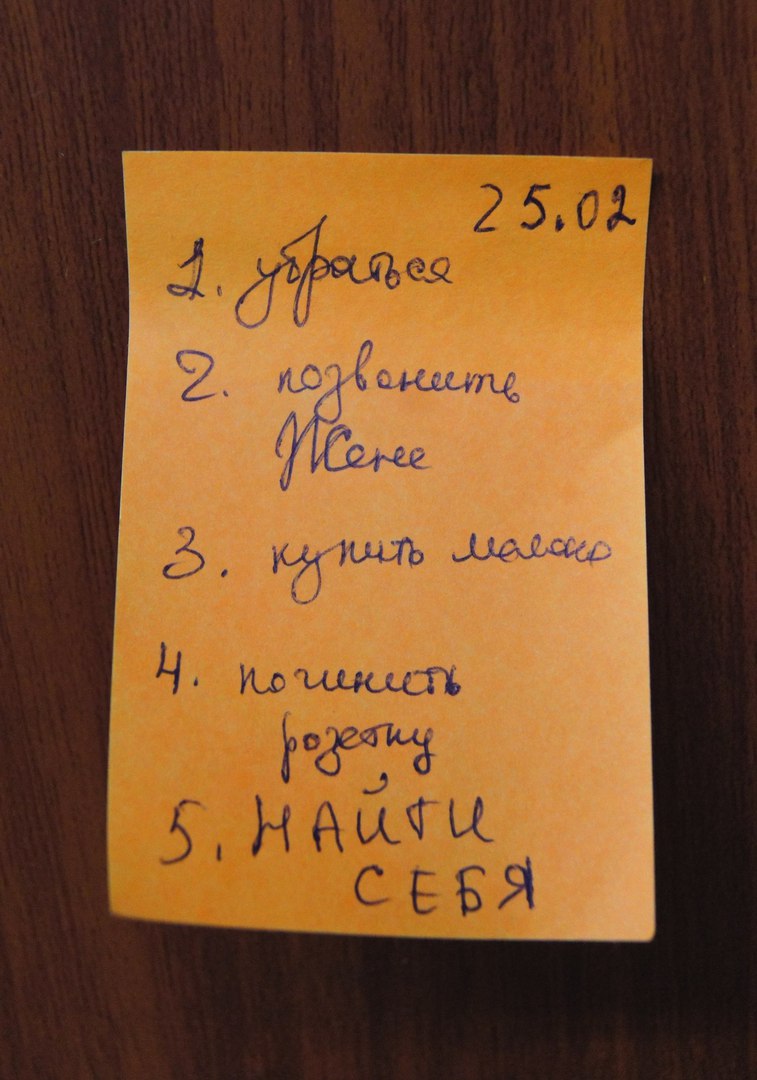 25.02
1. убраться
2. позвонить
Жене
3. купить молоко
4. починить
розетку
5. НАЙТИ
СЕБЯ